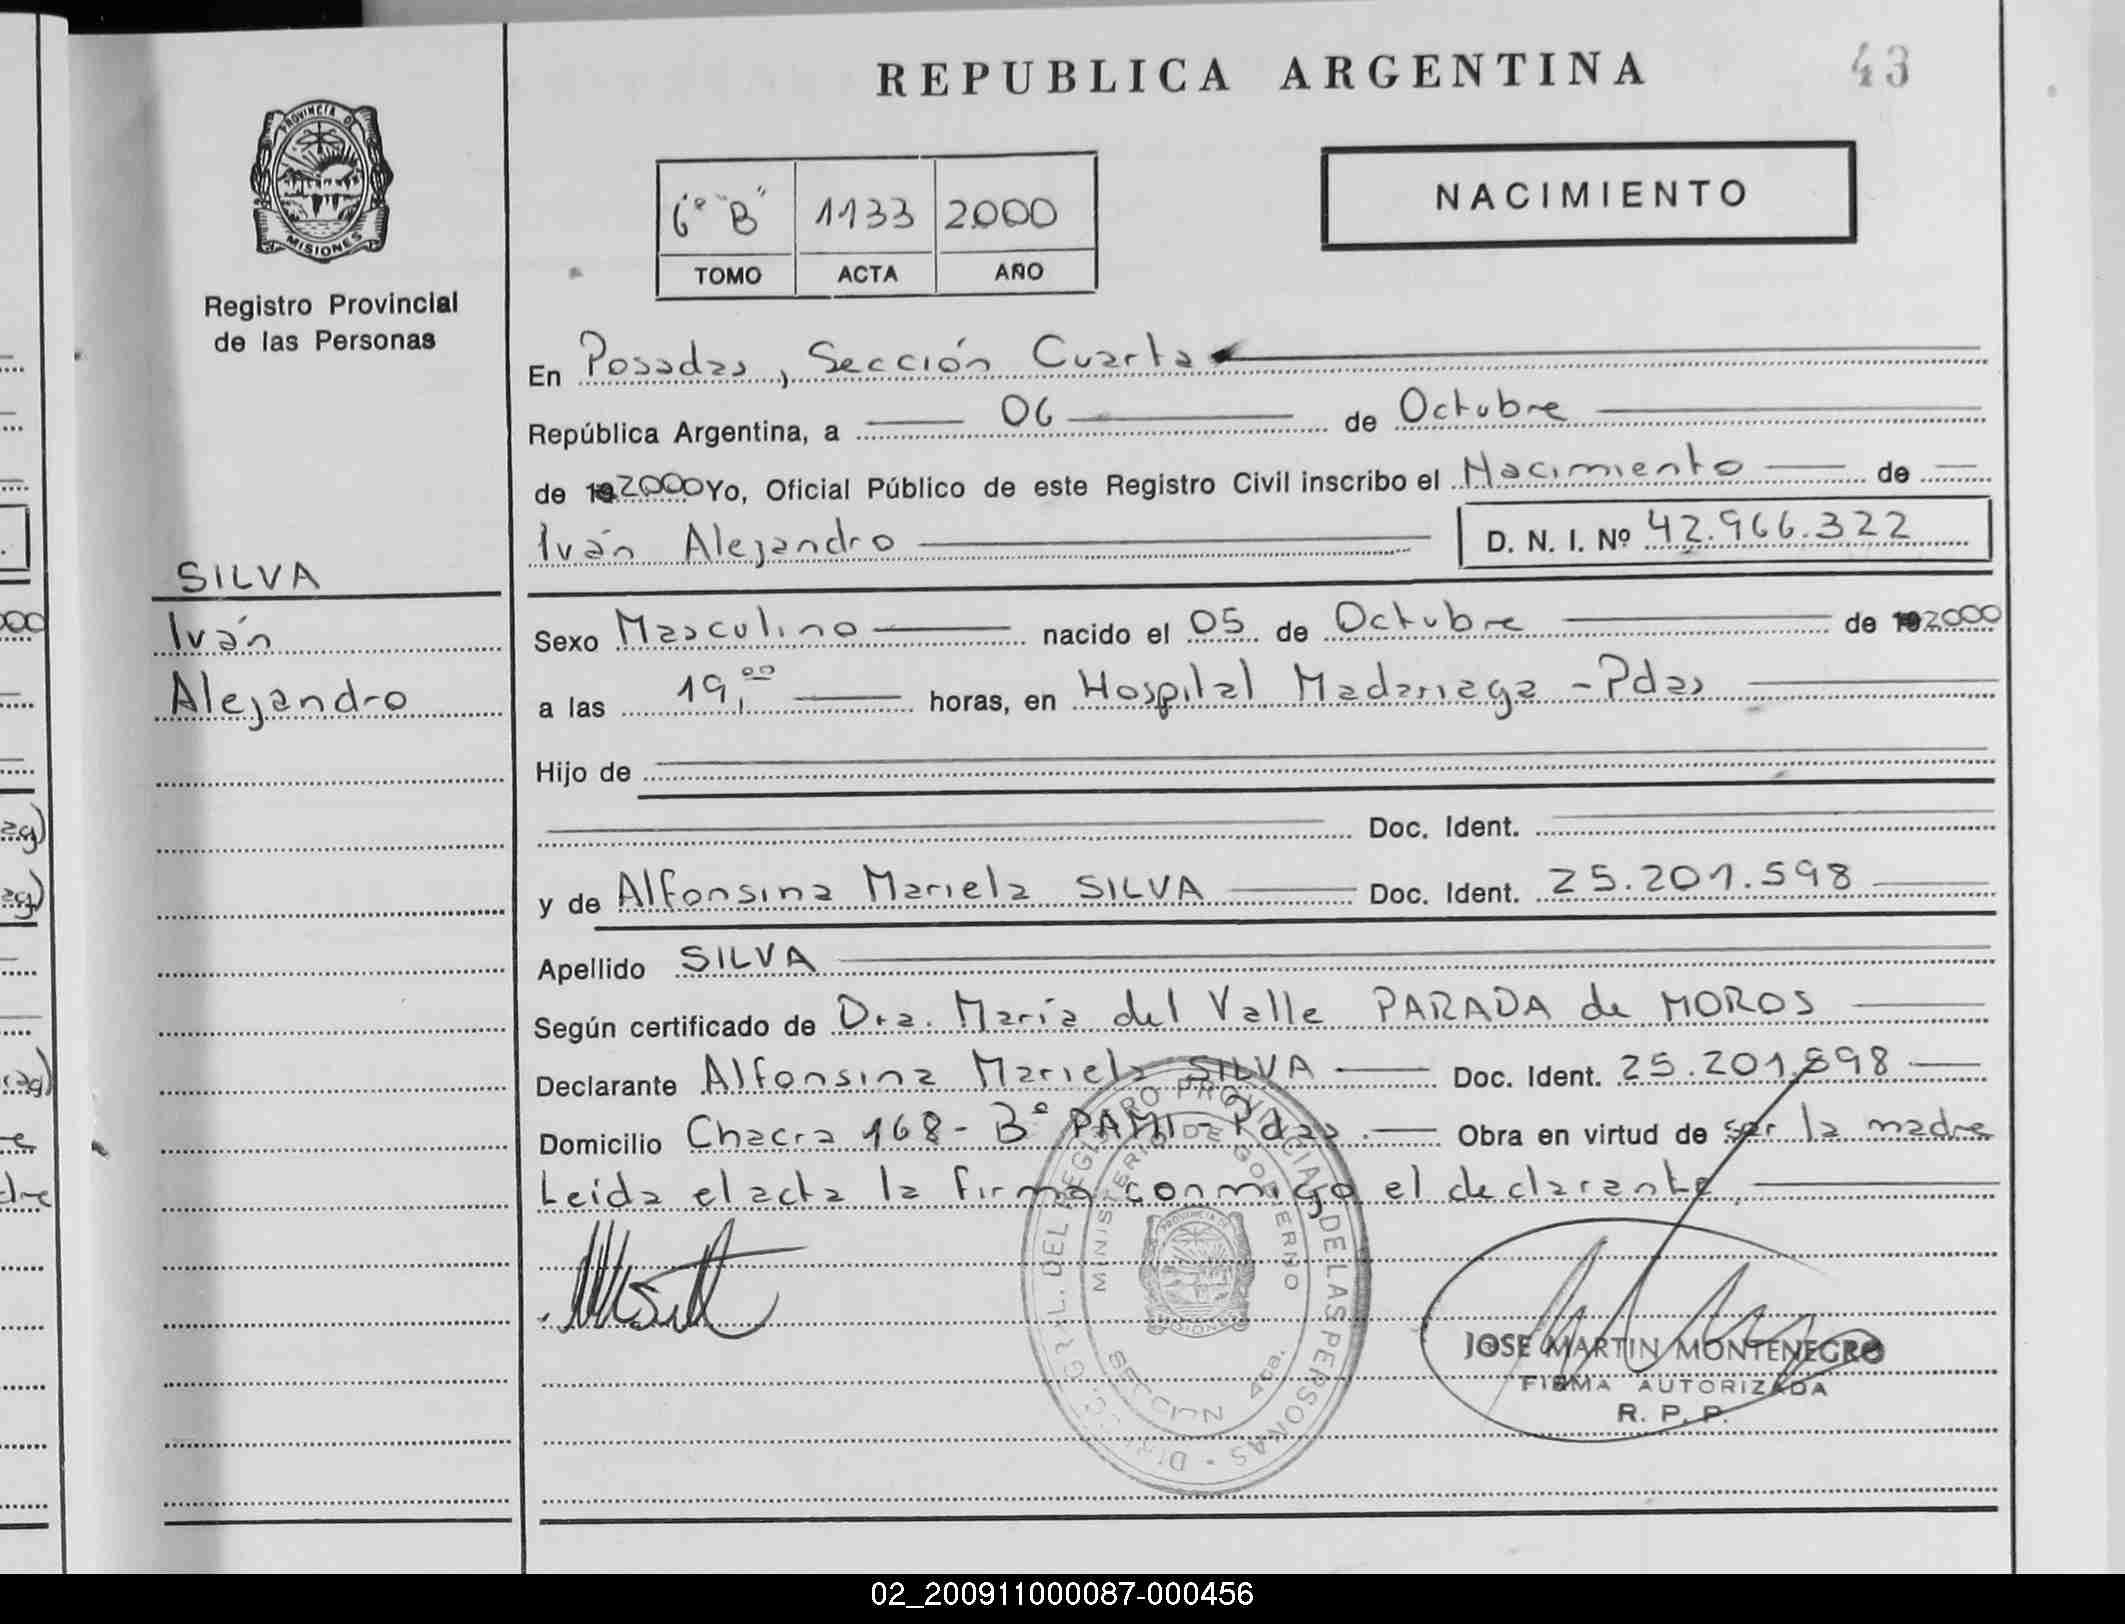 REPUBLICA ARGENTINA
43
PROVINCIA DE
MISIONES
Registro Provincial
de las Personas
6º "B" 1133 2000
TOMO ACTA AÑO
NACIMIENTO
En Posadas, Sección Cuarta
República Argentina, a 06 de Octubre
de 192000 Yo, Oficial Público de este Registro Civil inscribo el Nacimiento de
Iván Alejandro D. N. I. Nº 42.966.322
SILVA
Iván
Alejandro
Sexo Masculino nacido el 05 de Octubre de 192000
a las 19,00 horas, en Hospital Madariaga - Pdas
Hijo de
Doc. Ident.
y de Alfonsina Mariela SILVA Doc. Ident. 25.201.598
Apellido SILVA
Según certificado de Dra. María del Valle PARADA de MOROS
Declarante Alfonsina Mariela SILVA Doc. Ident. 25.201.598
Domicilio Chacra 168 - Bº PAMI - Pdas. Obra en virtud de ser la madre
Leida el acta la firma conmigo el declarante.
DEL REGISTRO PROVINCIAL DE LAS PERSONAS
MINISTERIO DE GOBIERNO
PROVINCIA DE
MISIONES
SECCION 4ta.
JOSE MARTIN MONTENEGRO
FIRMA AUTORIZADA
R. P. P.
02_200911000087-000456